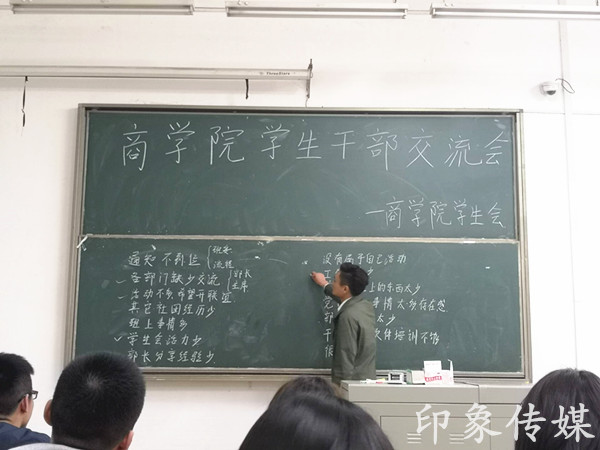 ThreeStars
商学院学生干部交流会
—商学院学生会
通知不到位
流程
各部门缺少交流
部长
主席
活动不多希望开联谊
其它社团经历少
班上事情多
✓学生会活力少
部长分享经验少
没有属于自己活动
上的东西太少
事情太多存在感
太少
干
软件培训不够
印象传媒